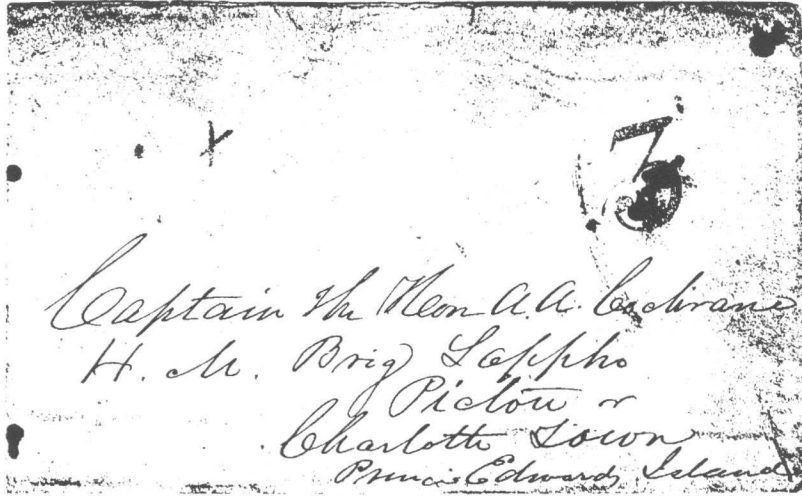 3
Captain the Hon A.A. Cochrane
H. M. Brig Sappho
Pictou or
Charlotte Town
Prince Edward Island